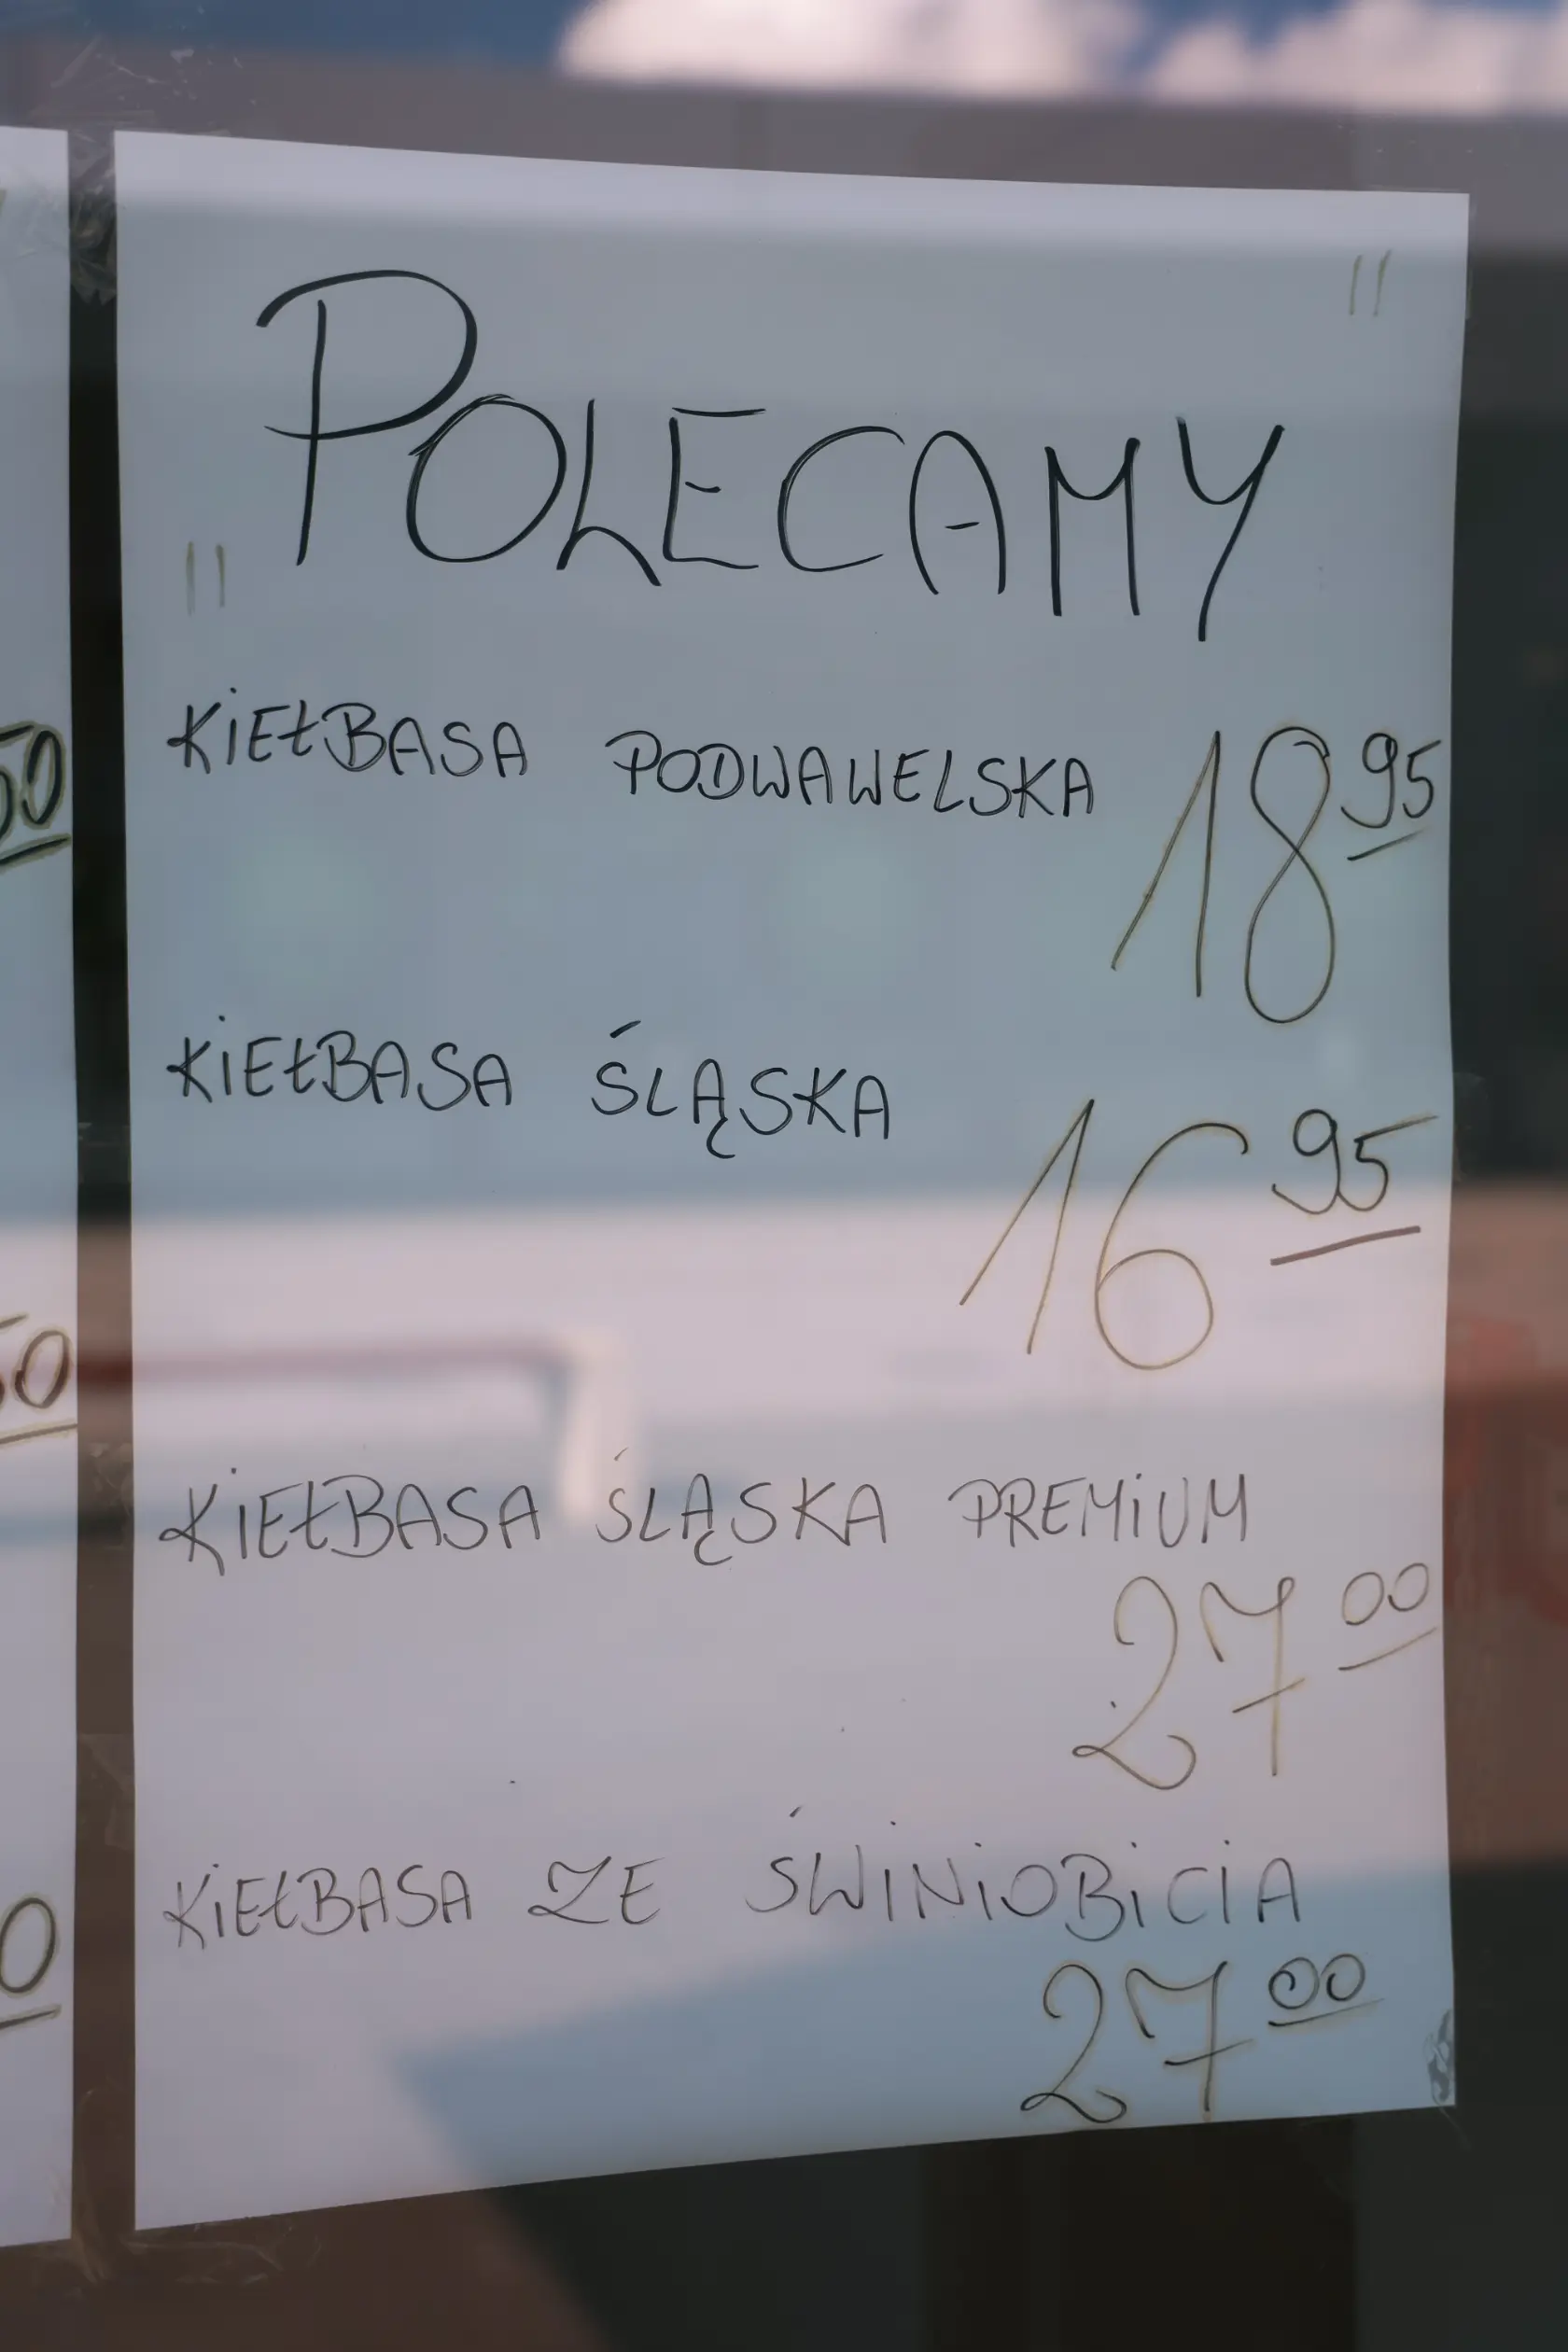 „POLECAMY"
KIEŁBASA PODWAWELSKA 18 95
KIEŁBASA ŚLĄSKA
16 95
KIEŁBASA ŚLĄSKA PREMIUM
27 00
KIEŁBASA ZE ŚWINIOBICIA
27 00
50
50
0